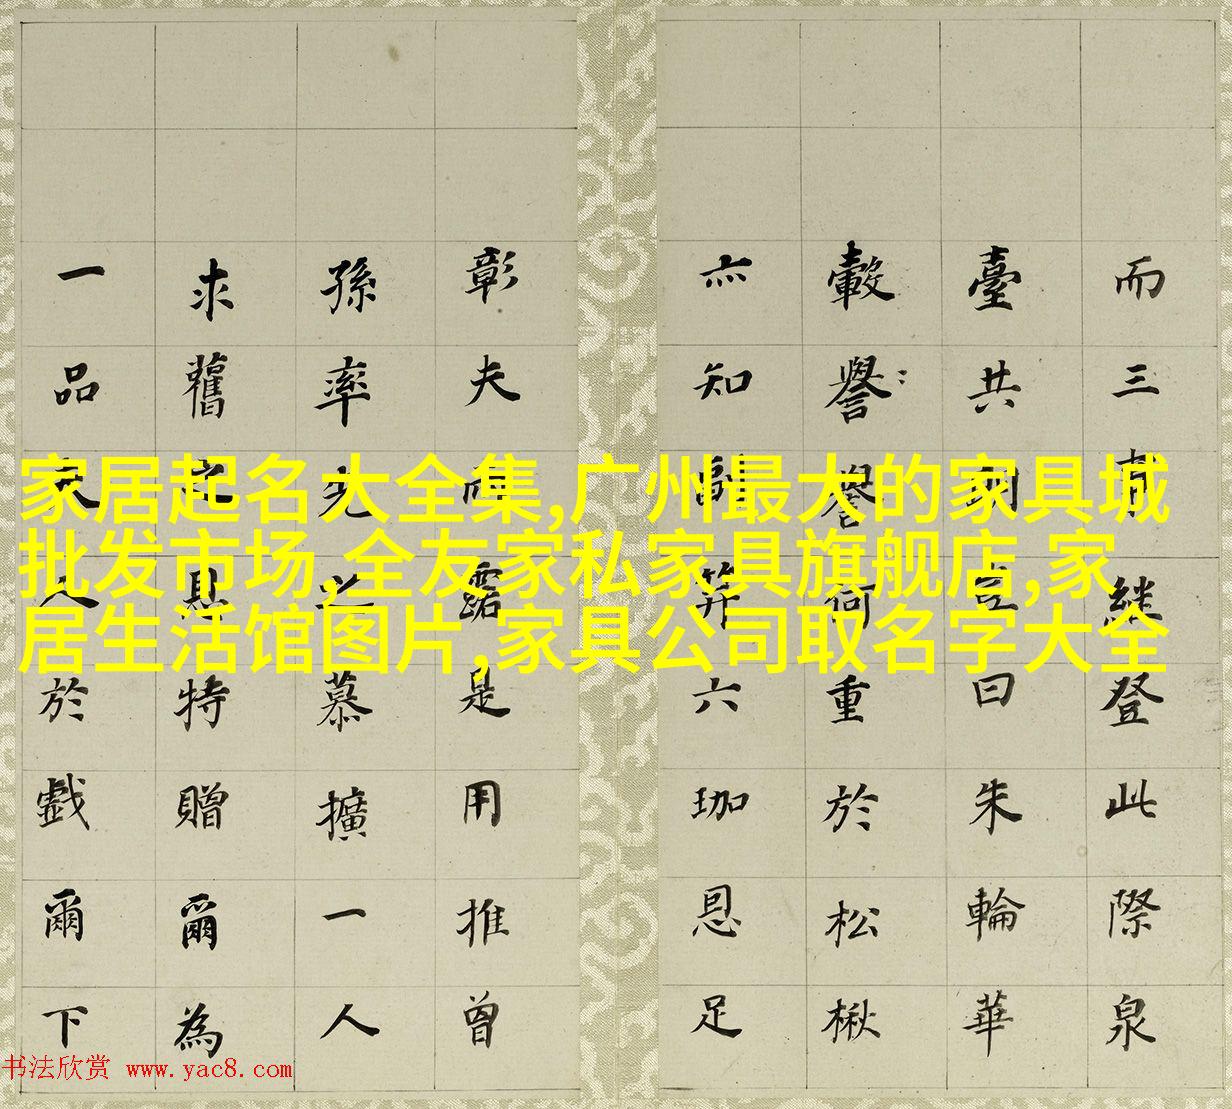 家居起名大全集,广州最大的家具城
批发市场,全友家私家具旗舰店,家
居生活馆图片,家具公司取名字大全
而三繼登此際泉
臺共豈曰朱輪華
轂譽譽何重於松楸
亦知副笄六珈恩足
彰夫雨露是用推曾
孫率先之慕擴一人
求舊之恩特贈爾為
一品夫人於戲爾下
书法欣赏 www.yac8.com